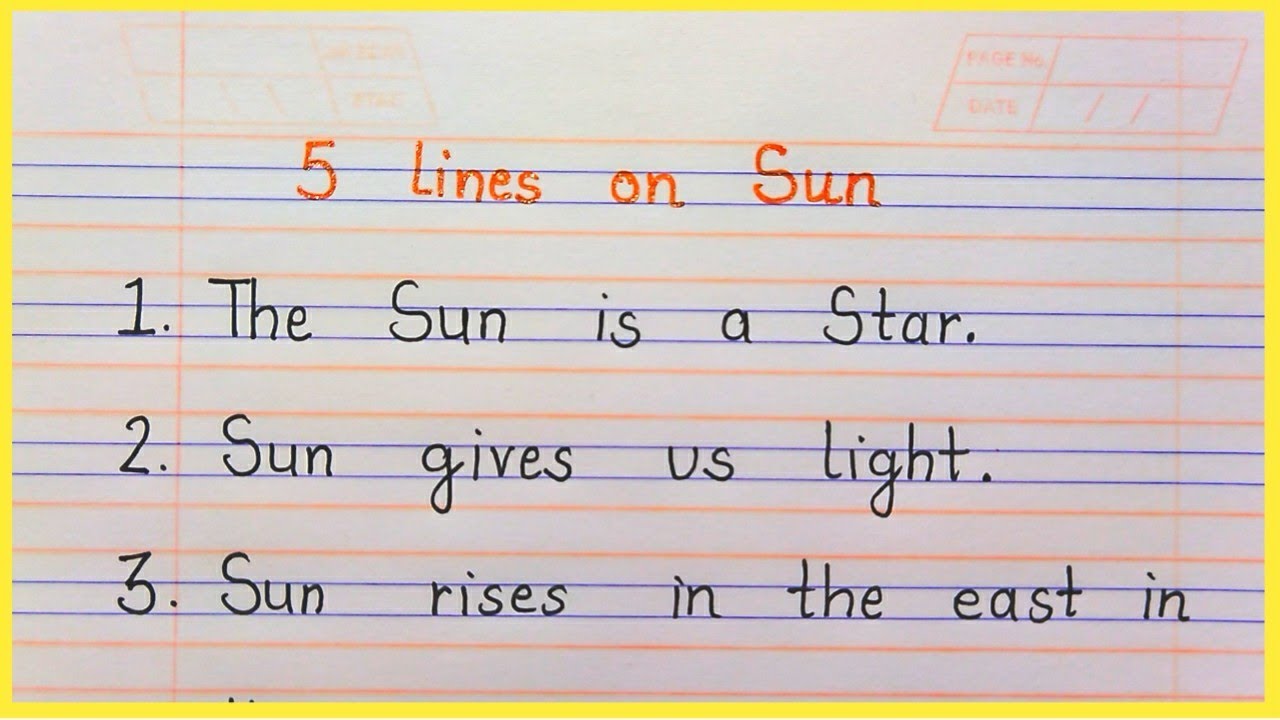 PAGE No.
DATE
5 Lines on Sun
1. The Sun is a Star.
2. Sun gives us light.
3. Sun rises in the east in